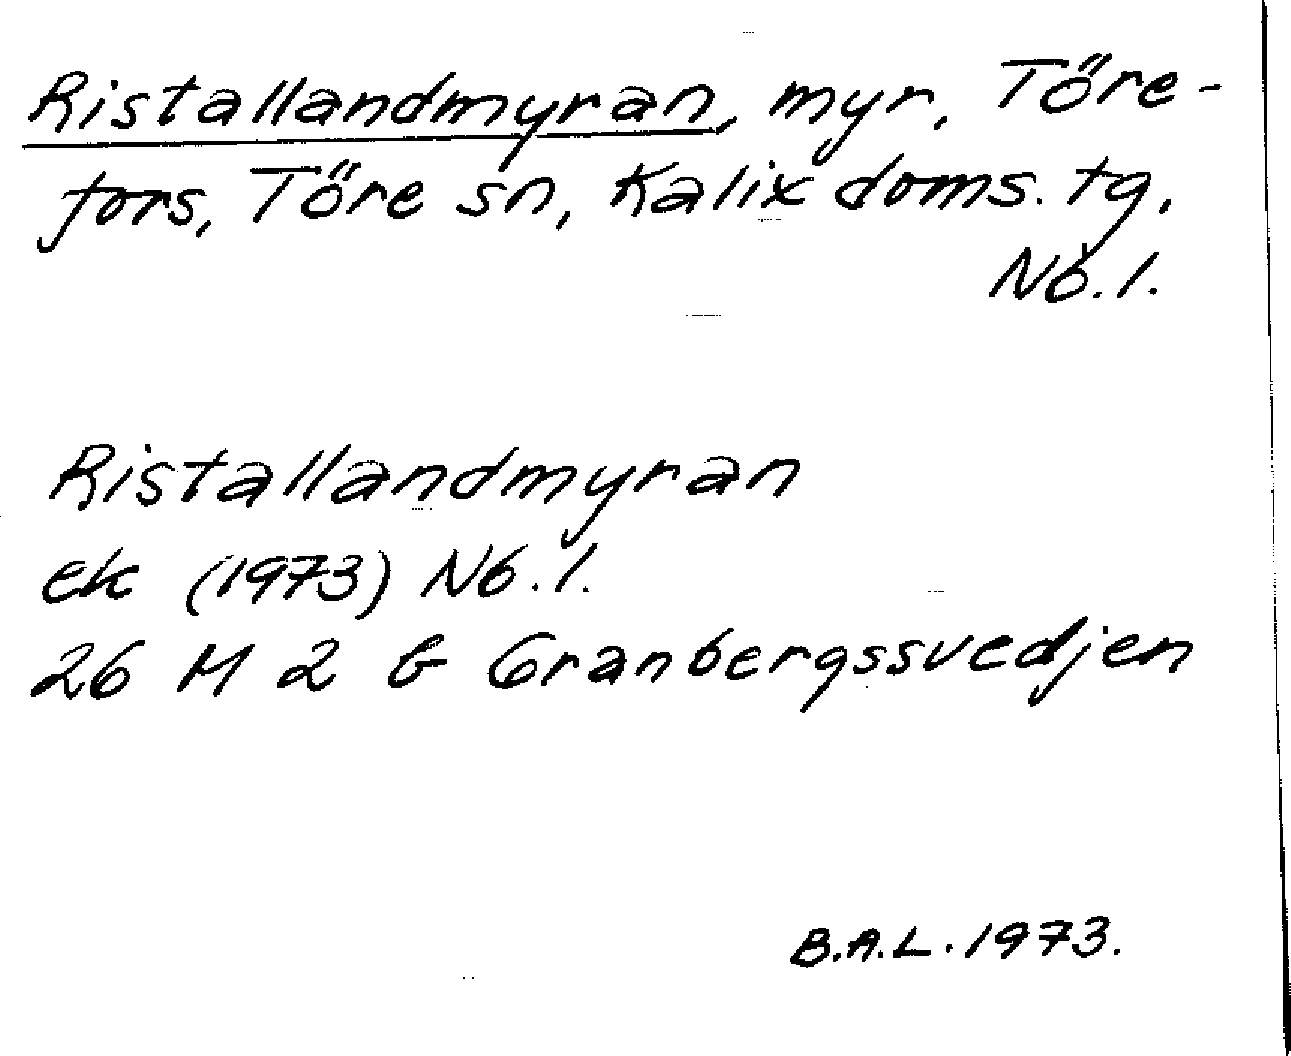 Ristallandmyran, myr, Töre-
fors, Töre sn, Kalix doms. tg,
Nb. l.
Ristallandmyran
ek (1973) Nb. l.
26 M 2 b Granbergssvedjen
B.A.L. 1973.